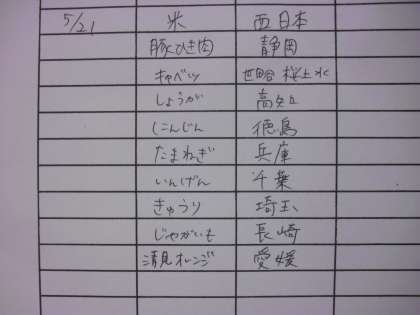 5/21 米 西日本
豚ひき肉 静岡
キャベツ 世田谷 桜上水
しょうが 高知
にんじん 徳島
たまねぎ 兵庫
いんげん 千葉
きゅうり 埼玉
じゃがいも 長崎
清見オレンジ 愛媛